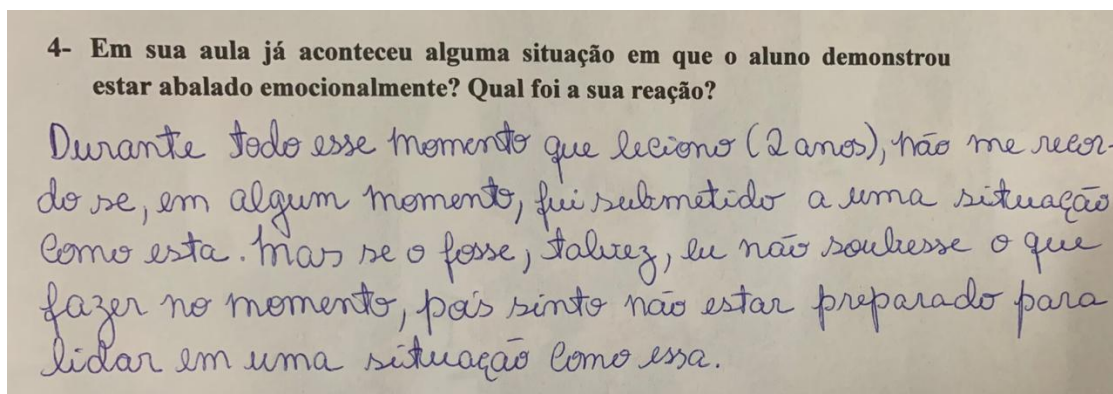 4- Em sua aula já aconteceu alguma situação em que o aluno demonstrou
estar abalado emocionalmente? Qual foi a sua reação?
Durante todo esse momento que leciono (2 anos), não me recor-
do se, em algum momento, fui submetido a uma situação
como esta. Mas se o fosse, talvez, eu não soubesse o que
fazer no momento, pois sinto não estar preparado para
lidar em uma situação como essa.